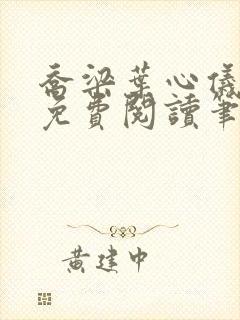 喬梁葉心儀
免費閱讀筆
黃建中